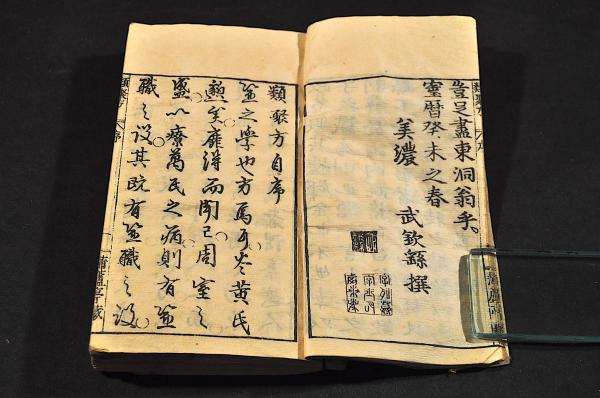 豈足盡東洞翁乎。
寶暦癸未之春
美濃 武欽繇撰
類聚方自序
醫之學也方焉耳岑黄氏
斁矣靡得而聞已周室之
盛以療萬民之病則有醫
職之設其既有醫職之設
類聚方 序